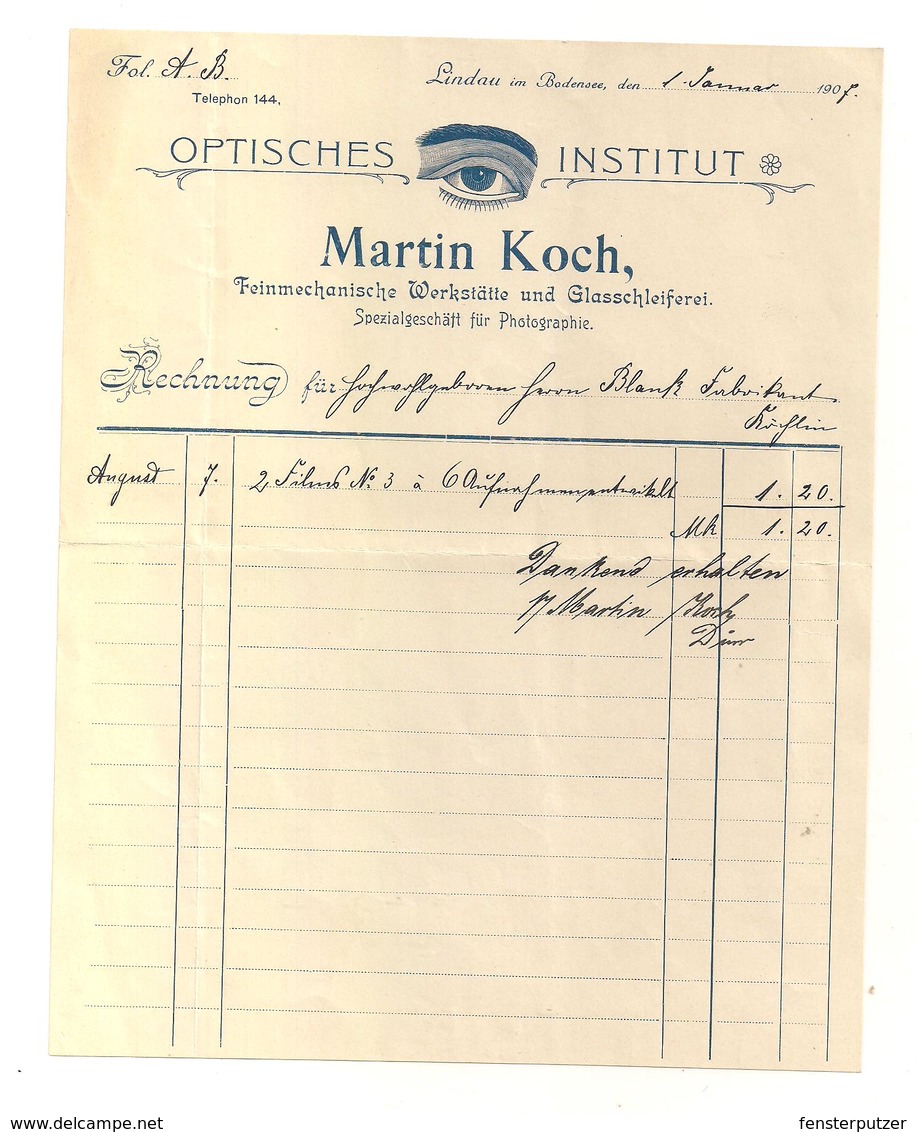 Fol. A. B.
Lindau im Bodensee, den 1. Januar 1907.
Telephon 144,
OPTISCHES INSTITUT
Martin Koch,
Feinmechanische Werkstätte und Glasschleiferei.
Spezialgeschäft für Photographie.
Rechnung für Hochwohlgeboren Herrn Blank Fabrikant
August 7. 2 Films No 3 à 6 Aufnahmen entwikelt 1. 20.
Mk 1. 20.
Dankend erhalten
Martin Koch
delcampe.net
fensterputzer